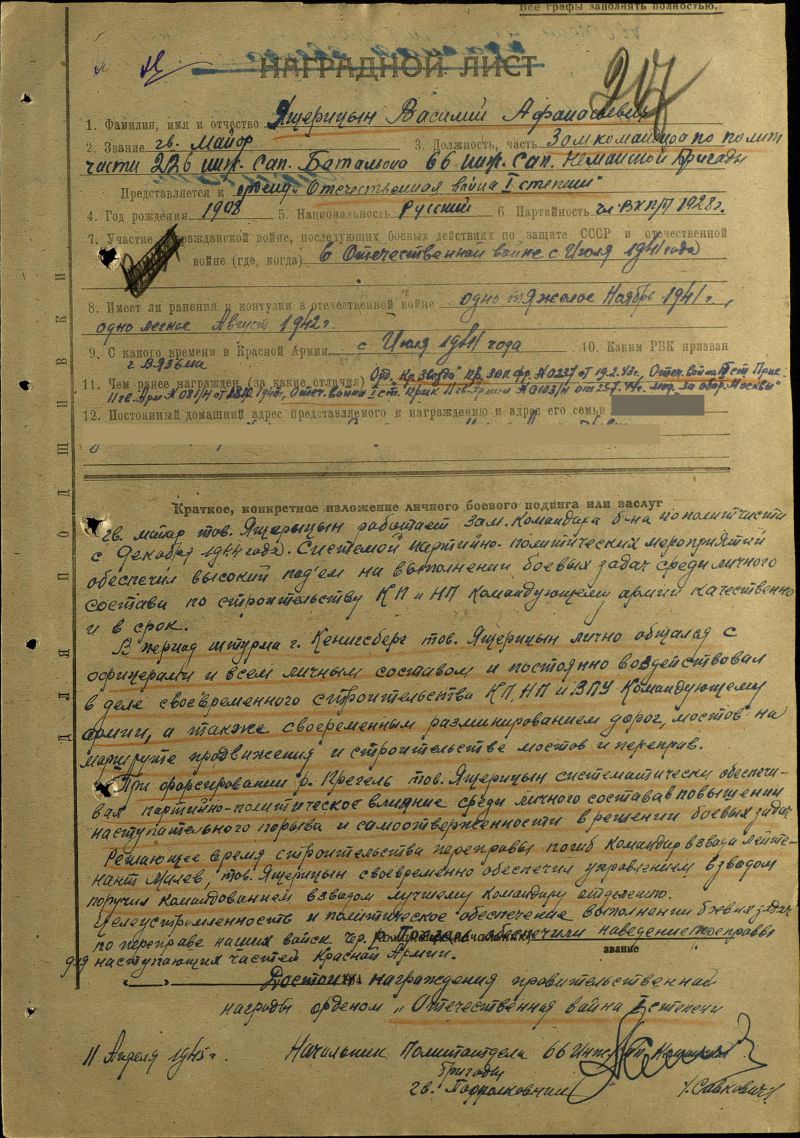 Все графы заполнять полностью.
НАГРАДНОЙ ЛИСТ
1. Фамилия, имя и отчество Ящерицын Василий Афанасьевич
2. Звание гв. майор 3. Должность, часть Зам командира по полит
части 226 инж. сап. Батальона 66 инж. сап. Неманской Бригады
Представляется к ордену "Отечественная война I степени"
4. Год рождения 1908 5. Национальность Русский 6. Партийность чл. ВКП/б 1928 г.
7. Участие в гражданской войне, последующих боевых действиях по защите СССР и отечественной
войне (где, когда) в Отечественной войне с Июля 1941 года
8. Имеет ли ранения и контузии в отечественной войне одно тяжелое Ноябрь 1941 г.,
одно легкое Август 1942 г.
9. С какого времени в Красной Армии с Июля 1941 года 10. Каким РВК призван
г. Вязьма
11. Чем ранее награжден (за какие отличия) Орд. Кр. Звезда Пр. Зап. фр. № 0237 от 19.2.43 г., Отеч. война II ст. Прик.
11 гв. Арм № 081/н от 1943 г., Отеч. войны I ст. Прик 11 гв. Армии от 25.7.44 г. мед. "за обор. Москвы"
12. Постоянный домашний адрес представляемого к награждению и адрес его семьи
Краткое, конкретное изложение личного боевого подвига или заслуг
гв. майор тов. Ящерицын работает Зам. Командира б-на по политчасти
с Декабря 1944 года. Системой партийно-политических мероприятий
обеспечил высокий под'ем на выполнении боевых задач среди личного
состава по строительству КП и НП Командующему армии качественно
и в срок.
В период штурма г. Кенигсберг тов. Ящерицын лично общался с
офицерами и всем личным составом и постоянно воздействовал
в деле своевременного строительства КП, НП и ВПУ Командующему
армии, а также своевременным разминированием дорог, мостов на
маршруте продвижения и строительстве мостов и переправ.
При форсировании р. Прегель тов. Ящерицын систематически обеспечи-
вал партийно-политическое влияние среди личного состава в повышении
наступательного порыва и самоотверженности в решении боевых задач
Решающее время строительства переправы погиб командир взвода лейте-
нант Малев, тов. Ящерицын своевременно обеспечил управлением взводом
поручил командованием взводом лучшему командиру отделению.
Целеустремленность и политическое обеспечение выполнении боевых задач
по переправе наших войск ч/р. Прегель обеспечили наведение переправы
звание
для наступающих частей Красной Армии.
Достоин награждения правительственной
награды орденом "Отечественная война I степени
11 Апреля 1945 г. Начальник Политотдела 66 Инж. Сап. Неманской
Бригады
гв. Подполковник /Савкович/